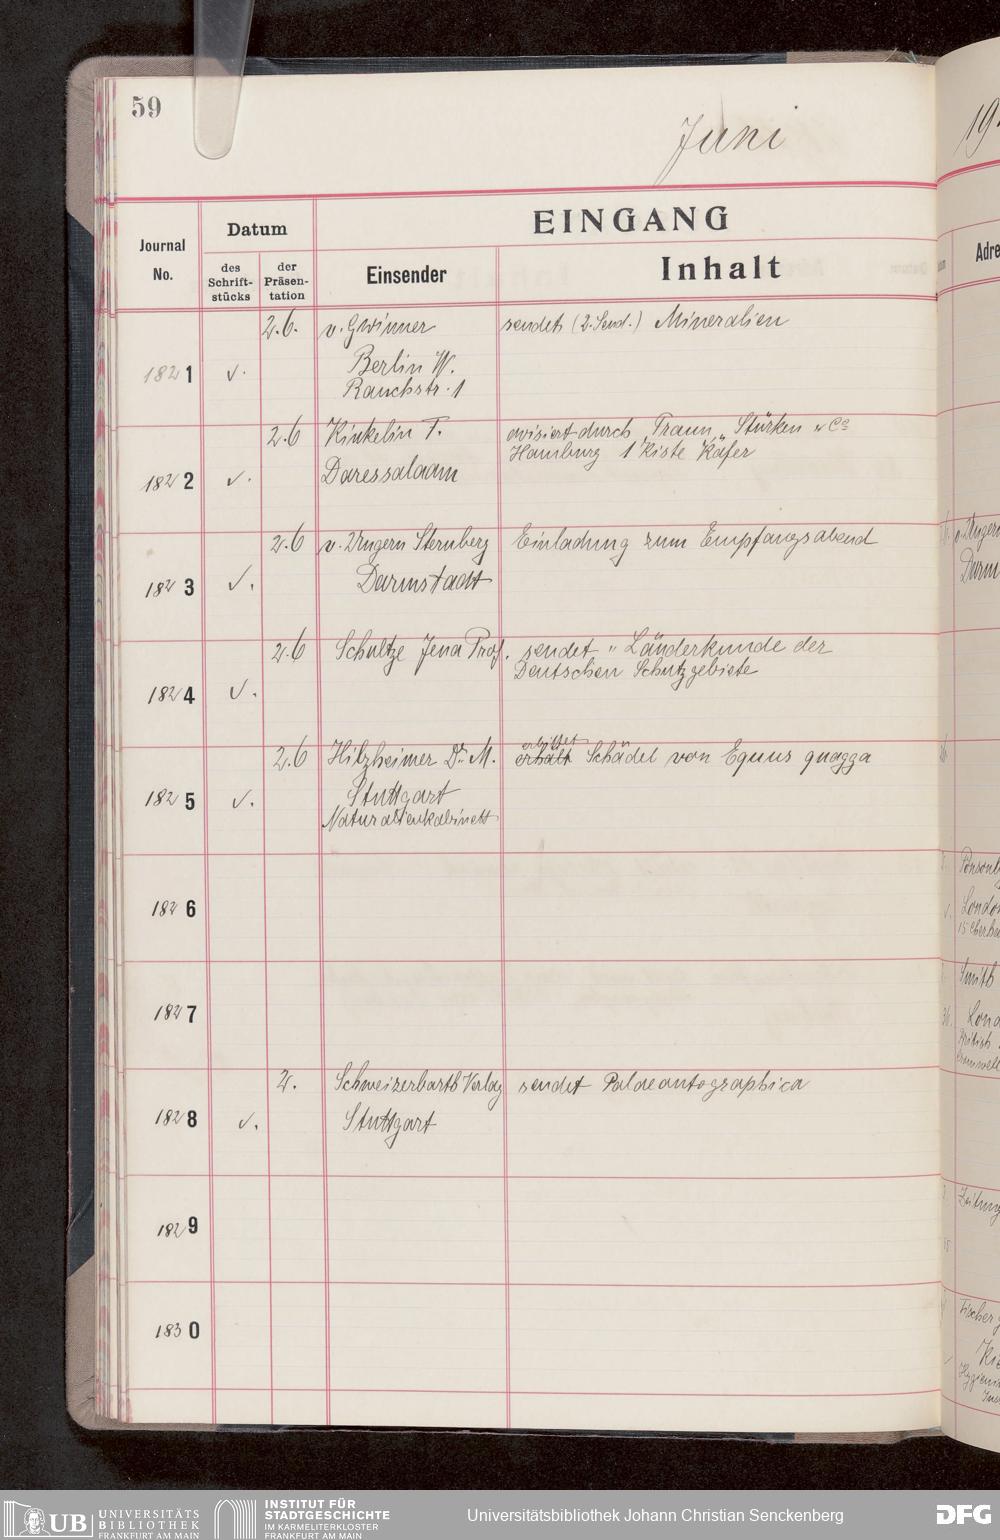 59
Juni
19
Journal No.
Datum
des Schrift-stücks
der Präsen-tation
EINGANG
Einsender
Inhalt
Adre
2.6. v. Gwinner sendet (2. Send.) Mineralien
1821 v. Berlin W.
Rauchstr. 1
2.6 Kinkelin F. avisiert durch "Traun, Stürken u Co
Hamburg 1 Kiste Käfer
1822 v. Daressalaam
2.6 v. Ungern Sternberg Einladung zum Empfangsabend
1823 v. Darmstadt
2.6 Schultze Jena Prof. sendet "Länderkunde der
Deutschen Schutzgebiete
1824 v.
erbittet
2.6 Hilzheimer Dr. M. erhält Schädel von Equus quagga
1825 v. Stuttgart
Naturalienkabinett
1826
1827
2. Schweizerbarth Verlag sendet Palaeontographica
1828 v. Stuttgart
1829
1830
v. Ungern
Darm
London
Smith
Lond
British
Zeitung
Fischer
UB UNIVERSITÄTS
BIBLIOTHEK
FRANKFURT AM MAIN
INSTITUT FÜR
STADTGESCHICHTE
IM KARMELITERKLOSTER
FRANKFURT AM MAIN
Universitätsbibliothek Johann Christian Senckenberg
DFG